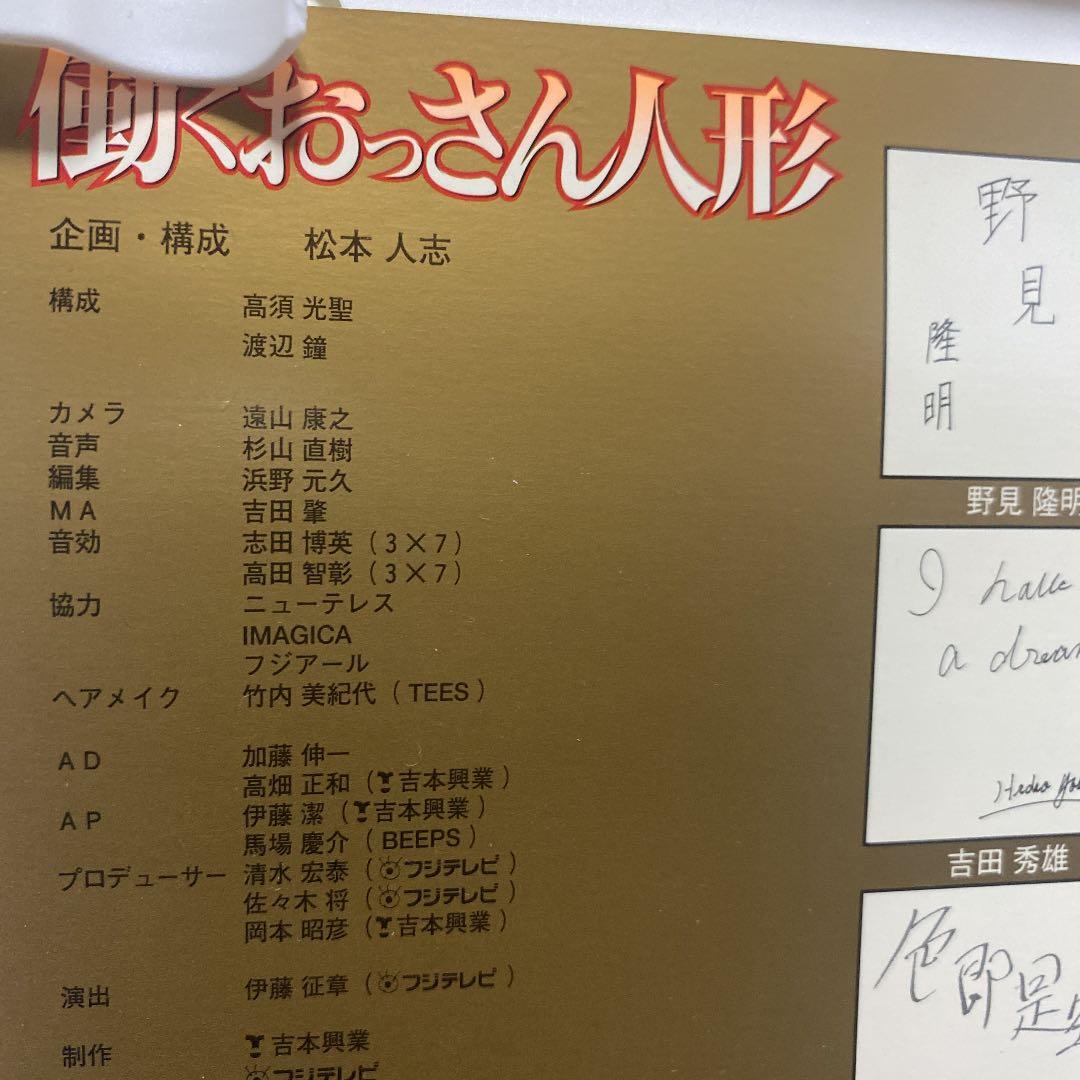 働くおっさん人形
企画・構成 松本 人志
構成 高須 光聖
渡辺 鐘
カメラ 遠山 康之
音声 杉山 直樹
編集 浜野 元久
MA 吉田 肇
音効 志田 博英（3×7）
高田 智彰（3×7）
協力 ニューテレス
IMAGICA
フジアール
ヘアメイク 竹内 美紀代（TEES）
AD 加藤 伸一
高畑 正和（吉本興業）
AP 伊藤 潔（吉本興業）
馬場 慶介（BEEPS）
プロデューサー 清水 宏泰（フジテレビ）
佐々木 将（フジテレビ）
岡本 昭彦（吉本興業）
演出 伊藤 征章（フジテレビ）
制作 吉本興業
フジテレビ
野見
隆明
野見 隆明
I have
a
吉田 秀雄
色即是